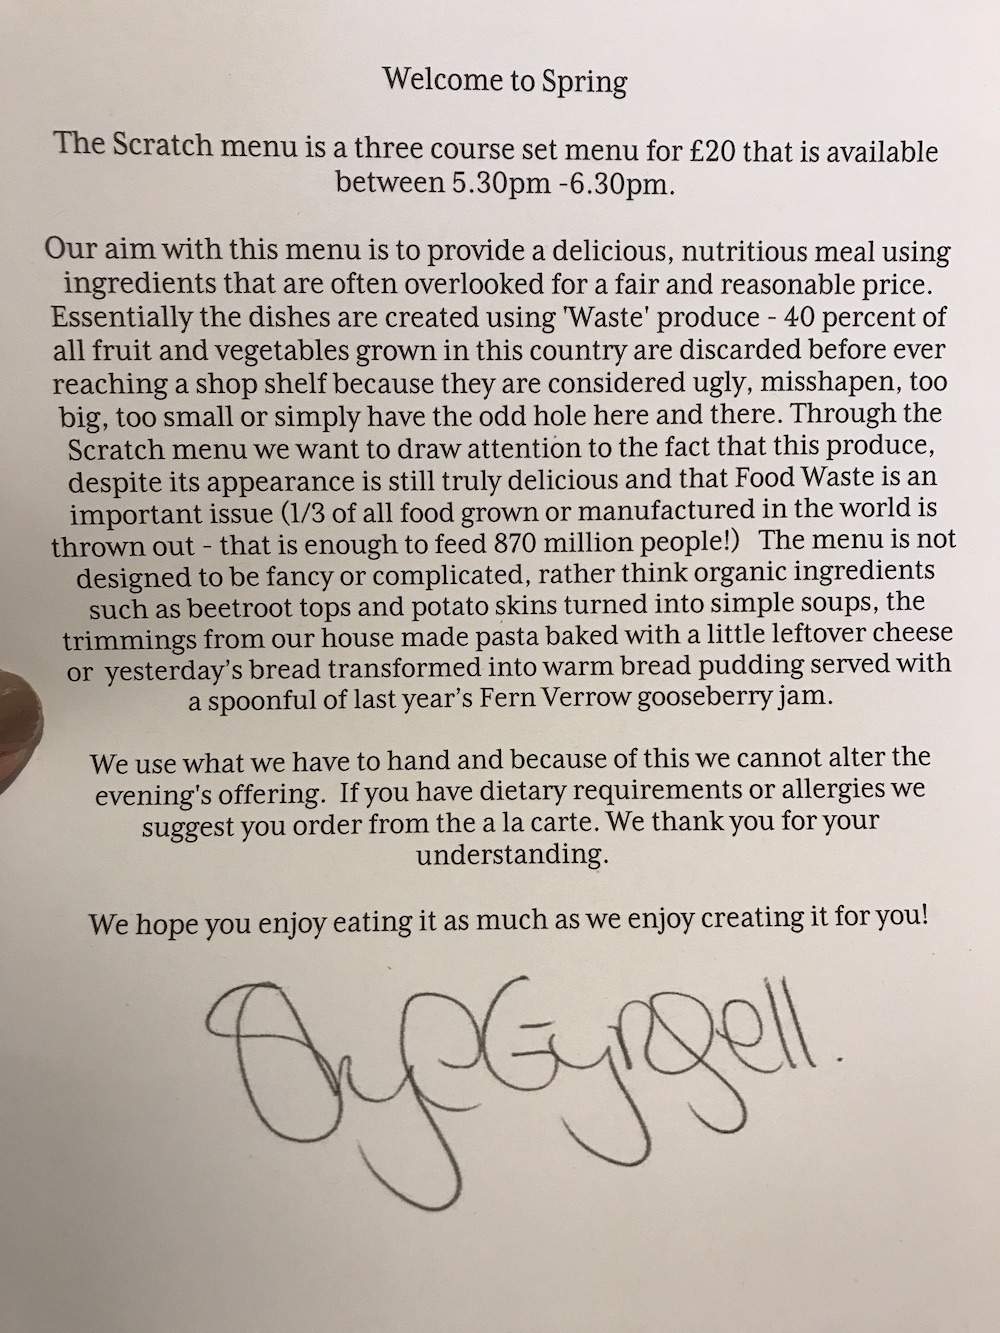 Welcome to Spring
The Scratch menu is a three course set menu for £20 that is available
between 5.30pm -6.30pm.
Our aim with this menu is to provide a delicious, nutritious meal using
ingredients that are often overlooked for a fair and reasonable price.
Essentially the dishes are created using 'Waste' produce - 40 percent of
all fruit and vegetables grown in this country are discarded before ever
reaching a shop shelf because they are considered ugly, misshapen, too
big, too small or simply have the odd hole here and there. Through the
Scratch menu we want to draw attention to the fact that this produce,
despite its appearance is still truly delicious and that Food Waste is an
important issue (1/3 of all food grown or manufactured in the world is
thrown out - that is enough to feed 870 million people!) The menu is not
designed to be fancy or complicated, rather think organic ingredients
such as beetroot tops and potato skins turned into simple soups, the
trimmings from our house made pasta baked with a little leftover cheese
or yesterday's bread transformed into warm bread pudding served with
a spoonful of last year's Fern Verrow gooseberry jam.
We use what we have to hand and because of this we cannot alter the
evening's offering. If you have dietary requirements or allergies we
suggest you order from the a la carte. We thank you for your
understanding.
We hope you enjoy eating it as much as we enjoy creating it for you!
Gyngell.